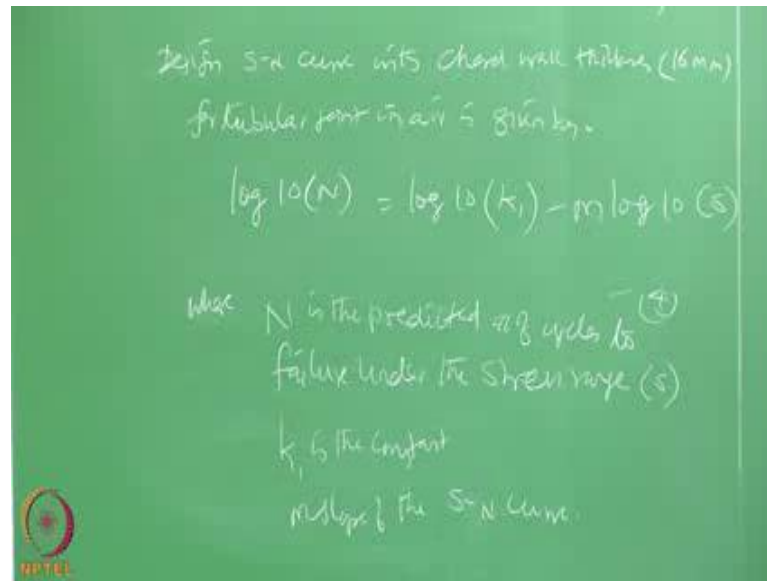 Design S-N curve with chord wall thickness (16mm)
for tubular joint in air is given by.
log 10(N) = log 10(k1) - m log 10 (S)
(4)
where N is the predicted no of cycles to
failure under the stress range (S)
k1 is the constant
m slope of the S-N curve.
NPTEL